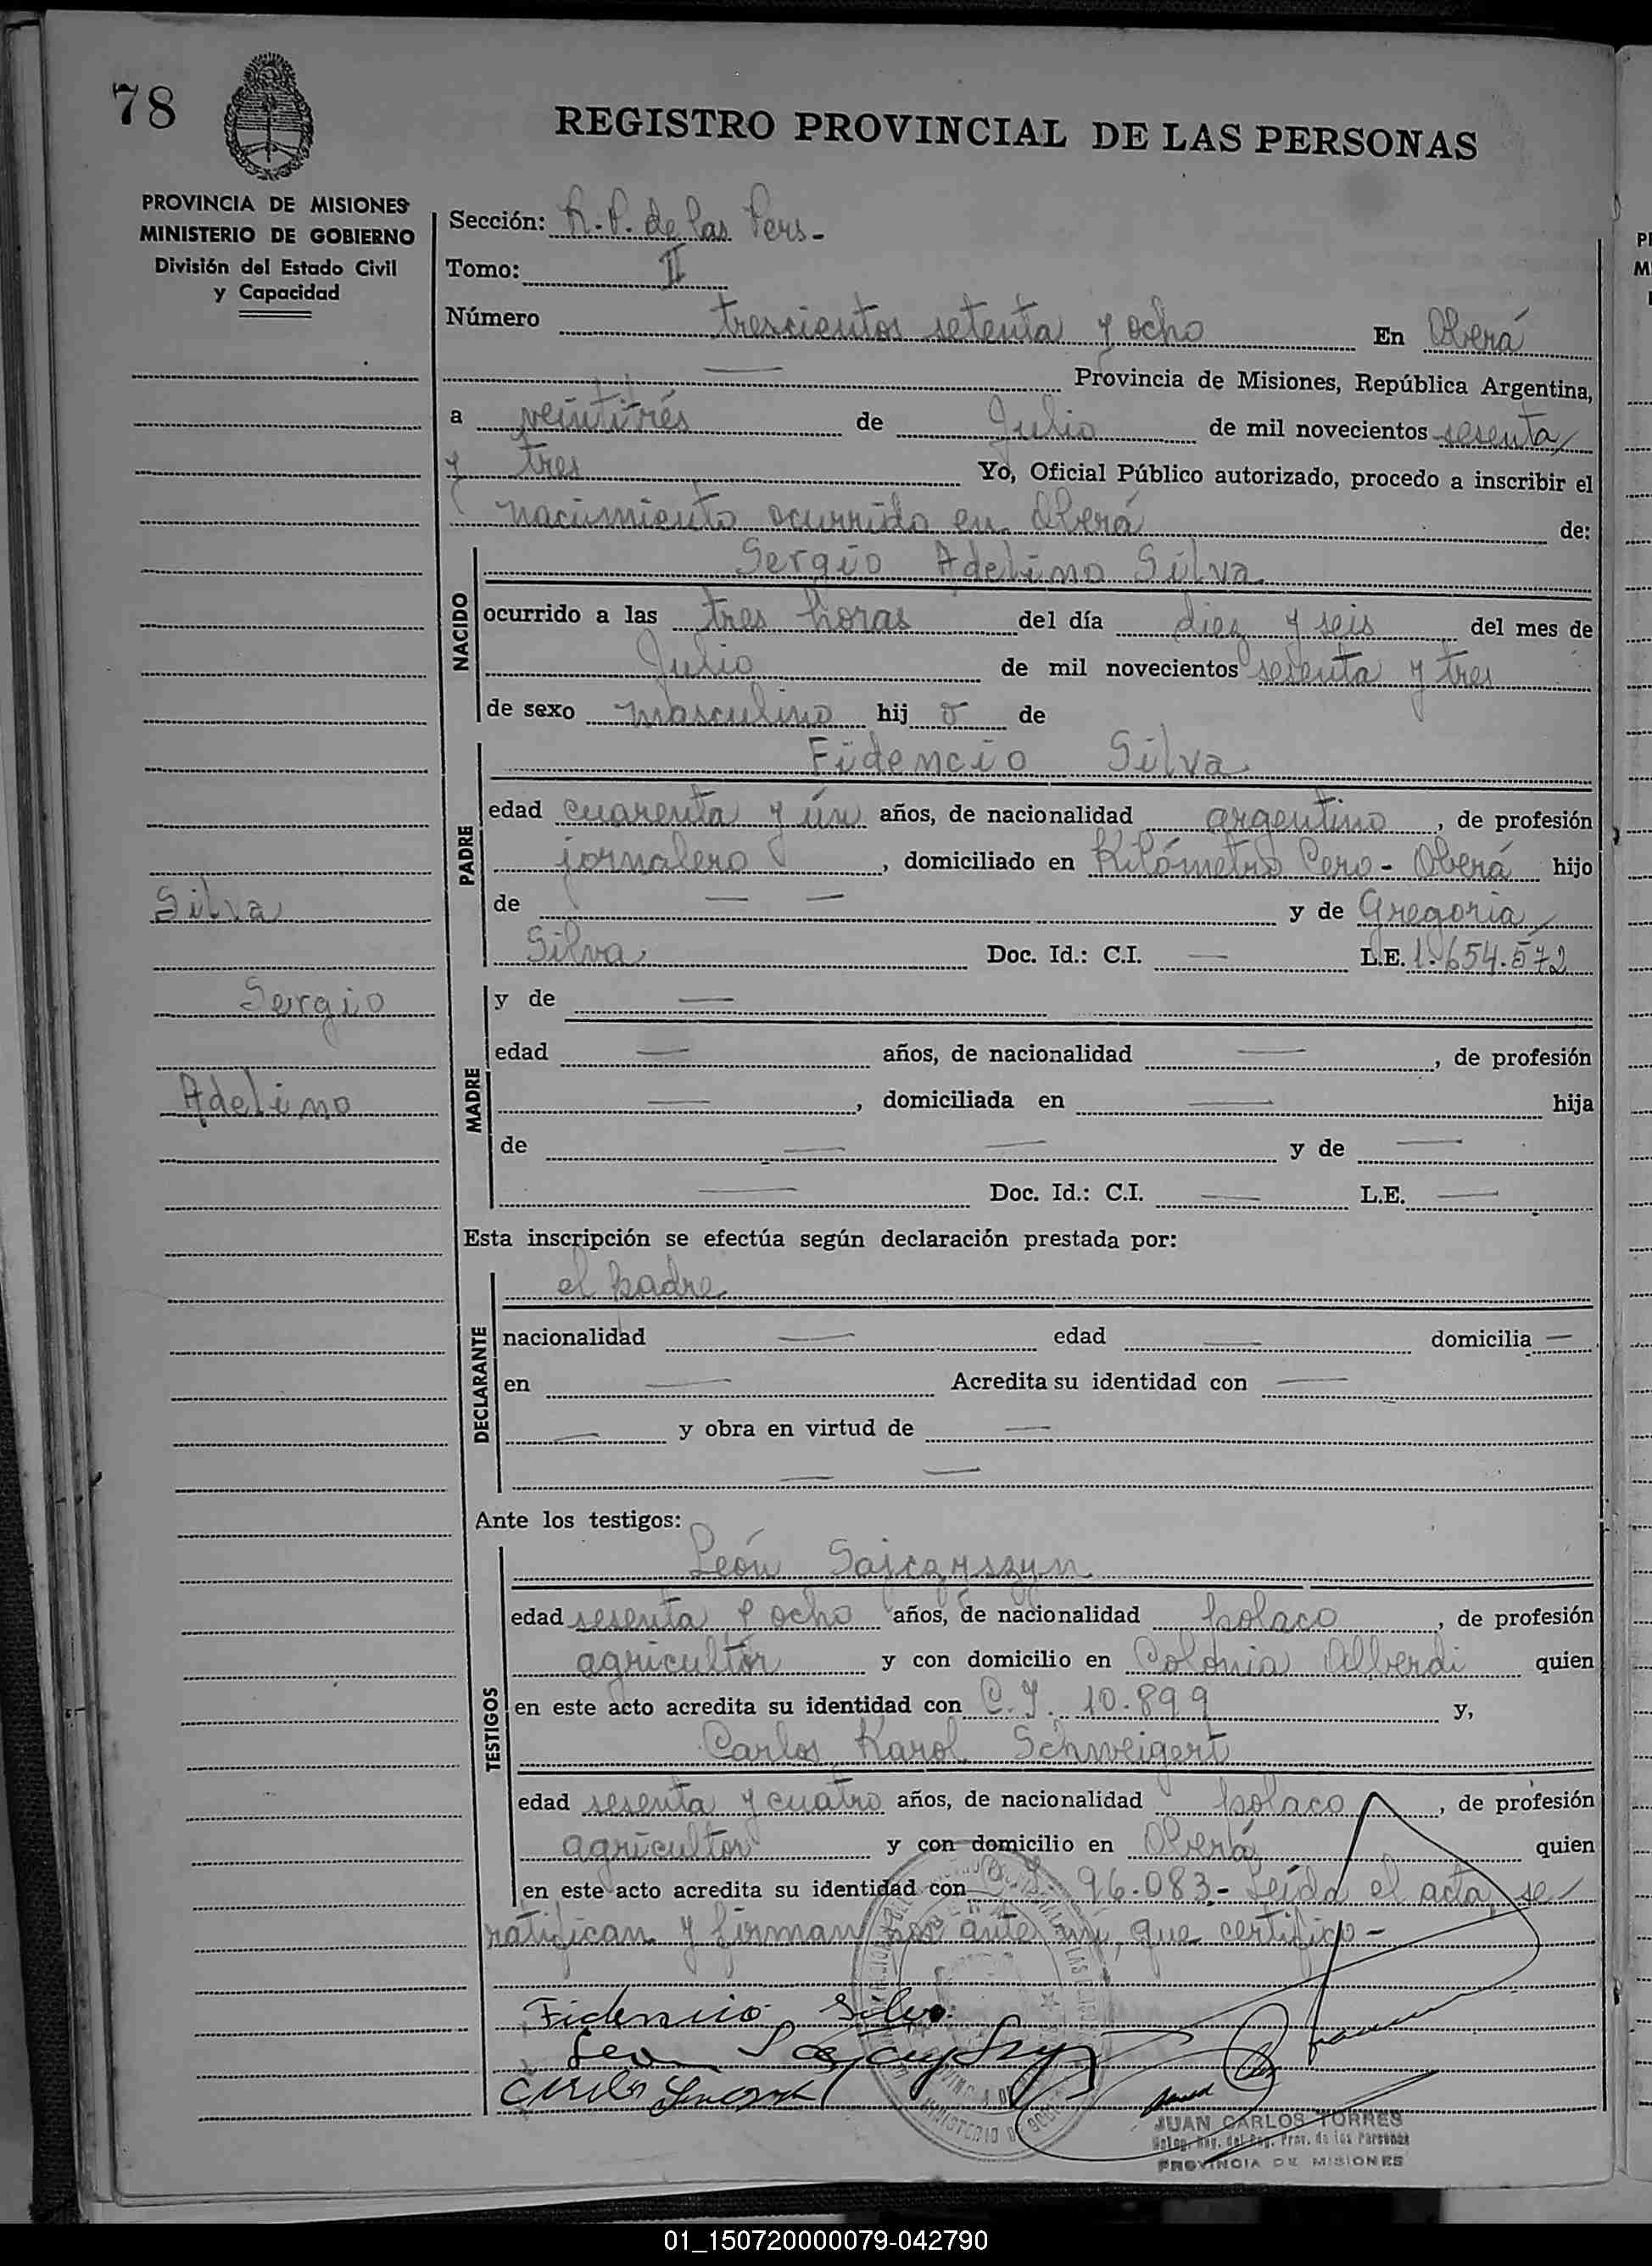 78
REGISTRO PROVINCIAL DE LAS PERSONAS
PROVINCIA DE MISIONES
MINISTERIO DE GOBIERNO
División del Estado Civil
y Capacidad
Sección: R.P. de las Pers-
Tomo: II
Número trescientos setenta y ocho En Oberá
— Provincia de Misiones, República Argentina,
a veintitrés de Julio de mil novecientos sesenta
y tres Yo, Oficial Público autorizado, procedo a inscribir el
nacimiento ocurrido en Oberá de:
NACIDO
Sergio Adelino Silva
ocurrido a las tres horas del día diez y seis del mes de
Julio de mil novecientos sesenta y tres
de sexo masculino hij o de
PADRE
Fidencio Silva
edad cuarenta y ún años, de nacionalidad argentino, de profesión
jornalero, domiciliado en Kilómetro Cero - Oberá hijo
de — — y de Gregoria
Silva Doc. Id.: C.I. — L.E. 1.654.572
Silva
Sergio
Adelino
MADRE
y de —
edad — años, de nacionalidad —, de profesión
—, domiciliada en — hija
de — — y de —
— Doc. Id.: C.I. — L.E. —
Esta inscripción se efectúa según declaración prestada por:
DECLARANTE
el padre
nacionalidad — edad — domicilia —
en — Acredita su identidad con —
— y obra en virtud de —
— —
Ante los testigos:
TESTIGOS
León Sajczyszyn
edad sesenta y ocho años, de nacionalidad polaco, de profesión
agricultor y con domicilio en Colonia Alberdi quien
en este acto acredita su identidad con C.I. 10.899 y,
Carlos Karol Schweigert
edad sesenta y cuatro años, de nacionalidad polaco, de profesión
agricultor y con domicilio en Oberá quien
en este acto acredita su identidad con C.I. 96.083- Leída el acta, se
ratifican y firman por ante mi, que certifico-
Fidencio Silva
JUAN CARLOS TORRES
PROVINCIA DE MISIONES
01_150720000079-042790